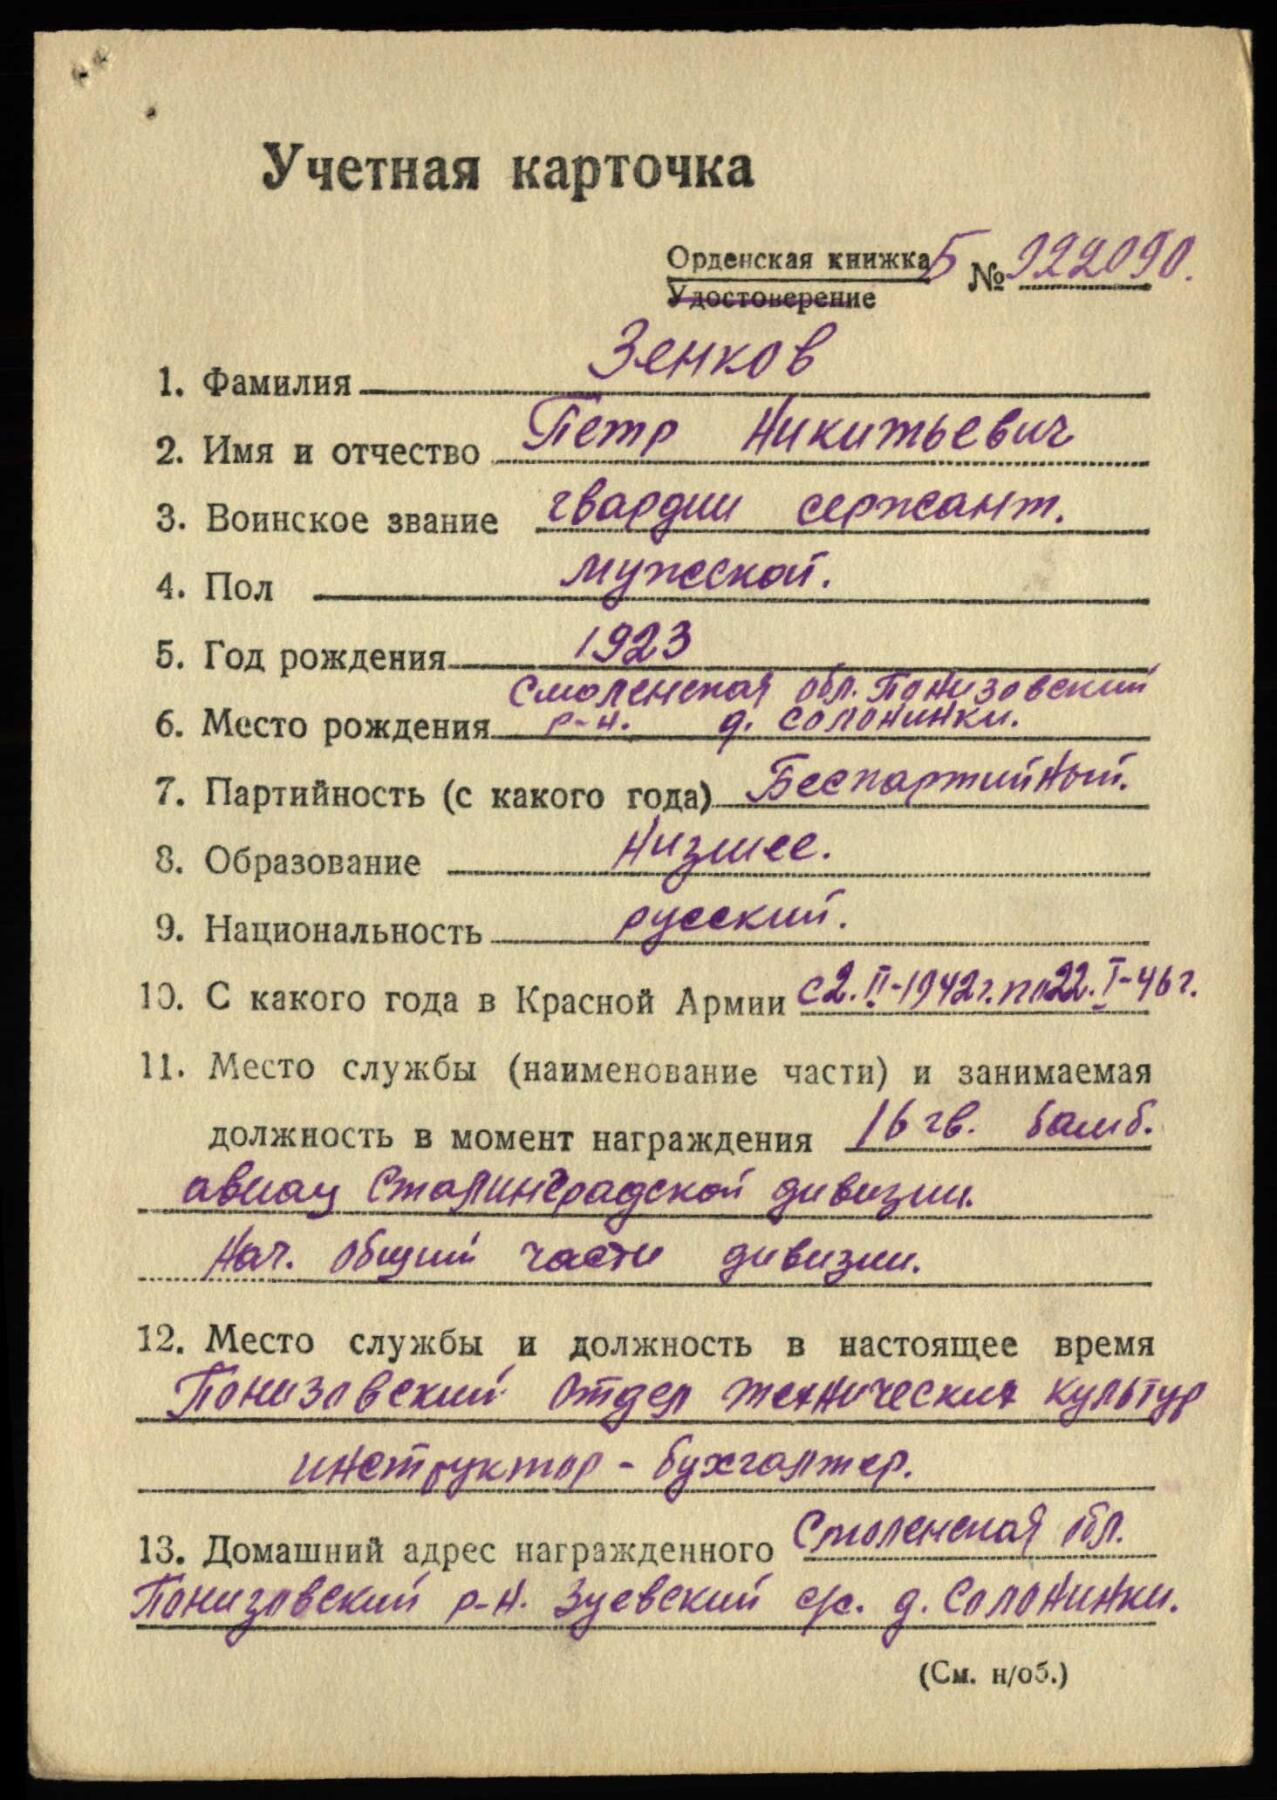 Учетная карточка
Орденская книжка Б № 922090.
Удостоверение
1. Фамилия Зенков
2. Имя и отчество Петр Никитьевич
3. Воинское звание гвардии сержант.
4. Пол мужской.
5. Год рождения 1923
Смоленская обл. Понизовский
6. Место рождения р-н. д. Солонинки.
7. Партийность (с какого года) Беспартийный.
8. Образование низшее.
9. Национальность русский.
10. С какого года в Красной Армии с 2.II-1942г. по 22.I-46г.
11. Место службы (наименование части) и занимаемая
должность в момент награждения 16 гв. бомб.
авиац Сталинградской дивизии.
Нач. общий части дивизии.
12. Место службы и должность в настоящее время
Понизовский отдел технических культур
инструктор - бухгалтер.
13. Домашний адрес награжденного Смоленская обл.
Понизовский р-н. Зуевский с/с. д. Солонинки.
(См. н/об.)